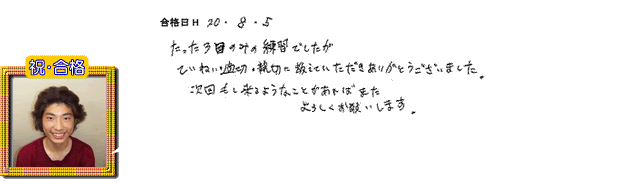 合格日 H 20・8・5
たった3回のみの練習でしたが
ていねい・適切・親切に教えていただきありがとうございました。
次回もし来るようなことがあればまた
よろしくお願いします。
祝・合格